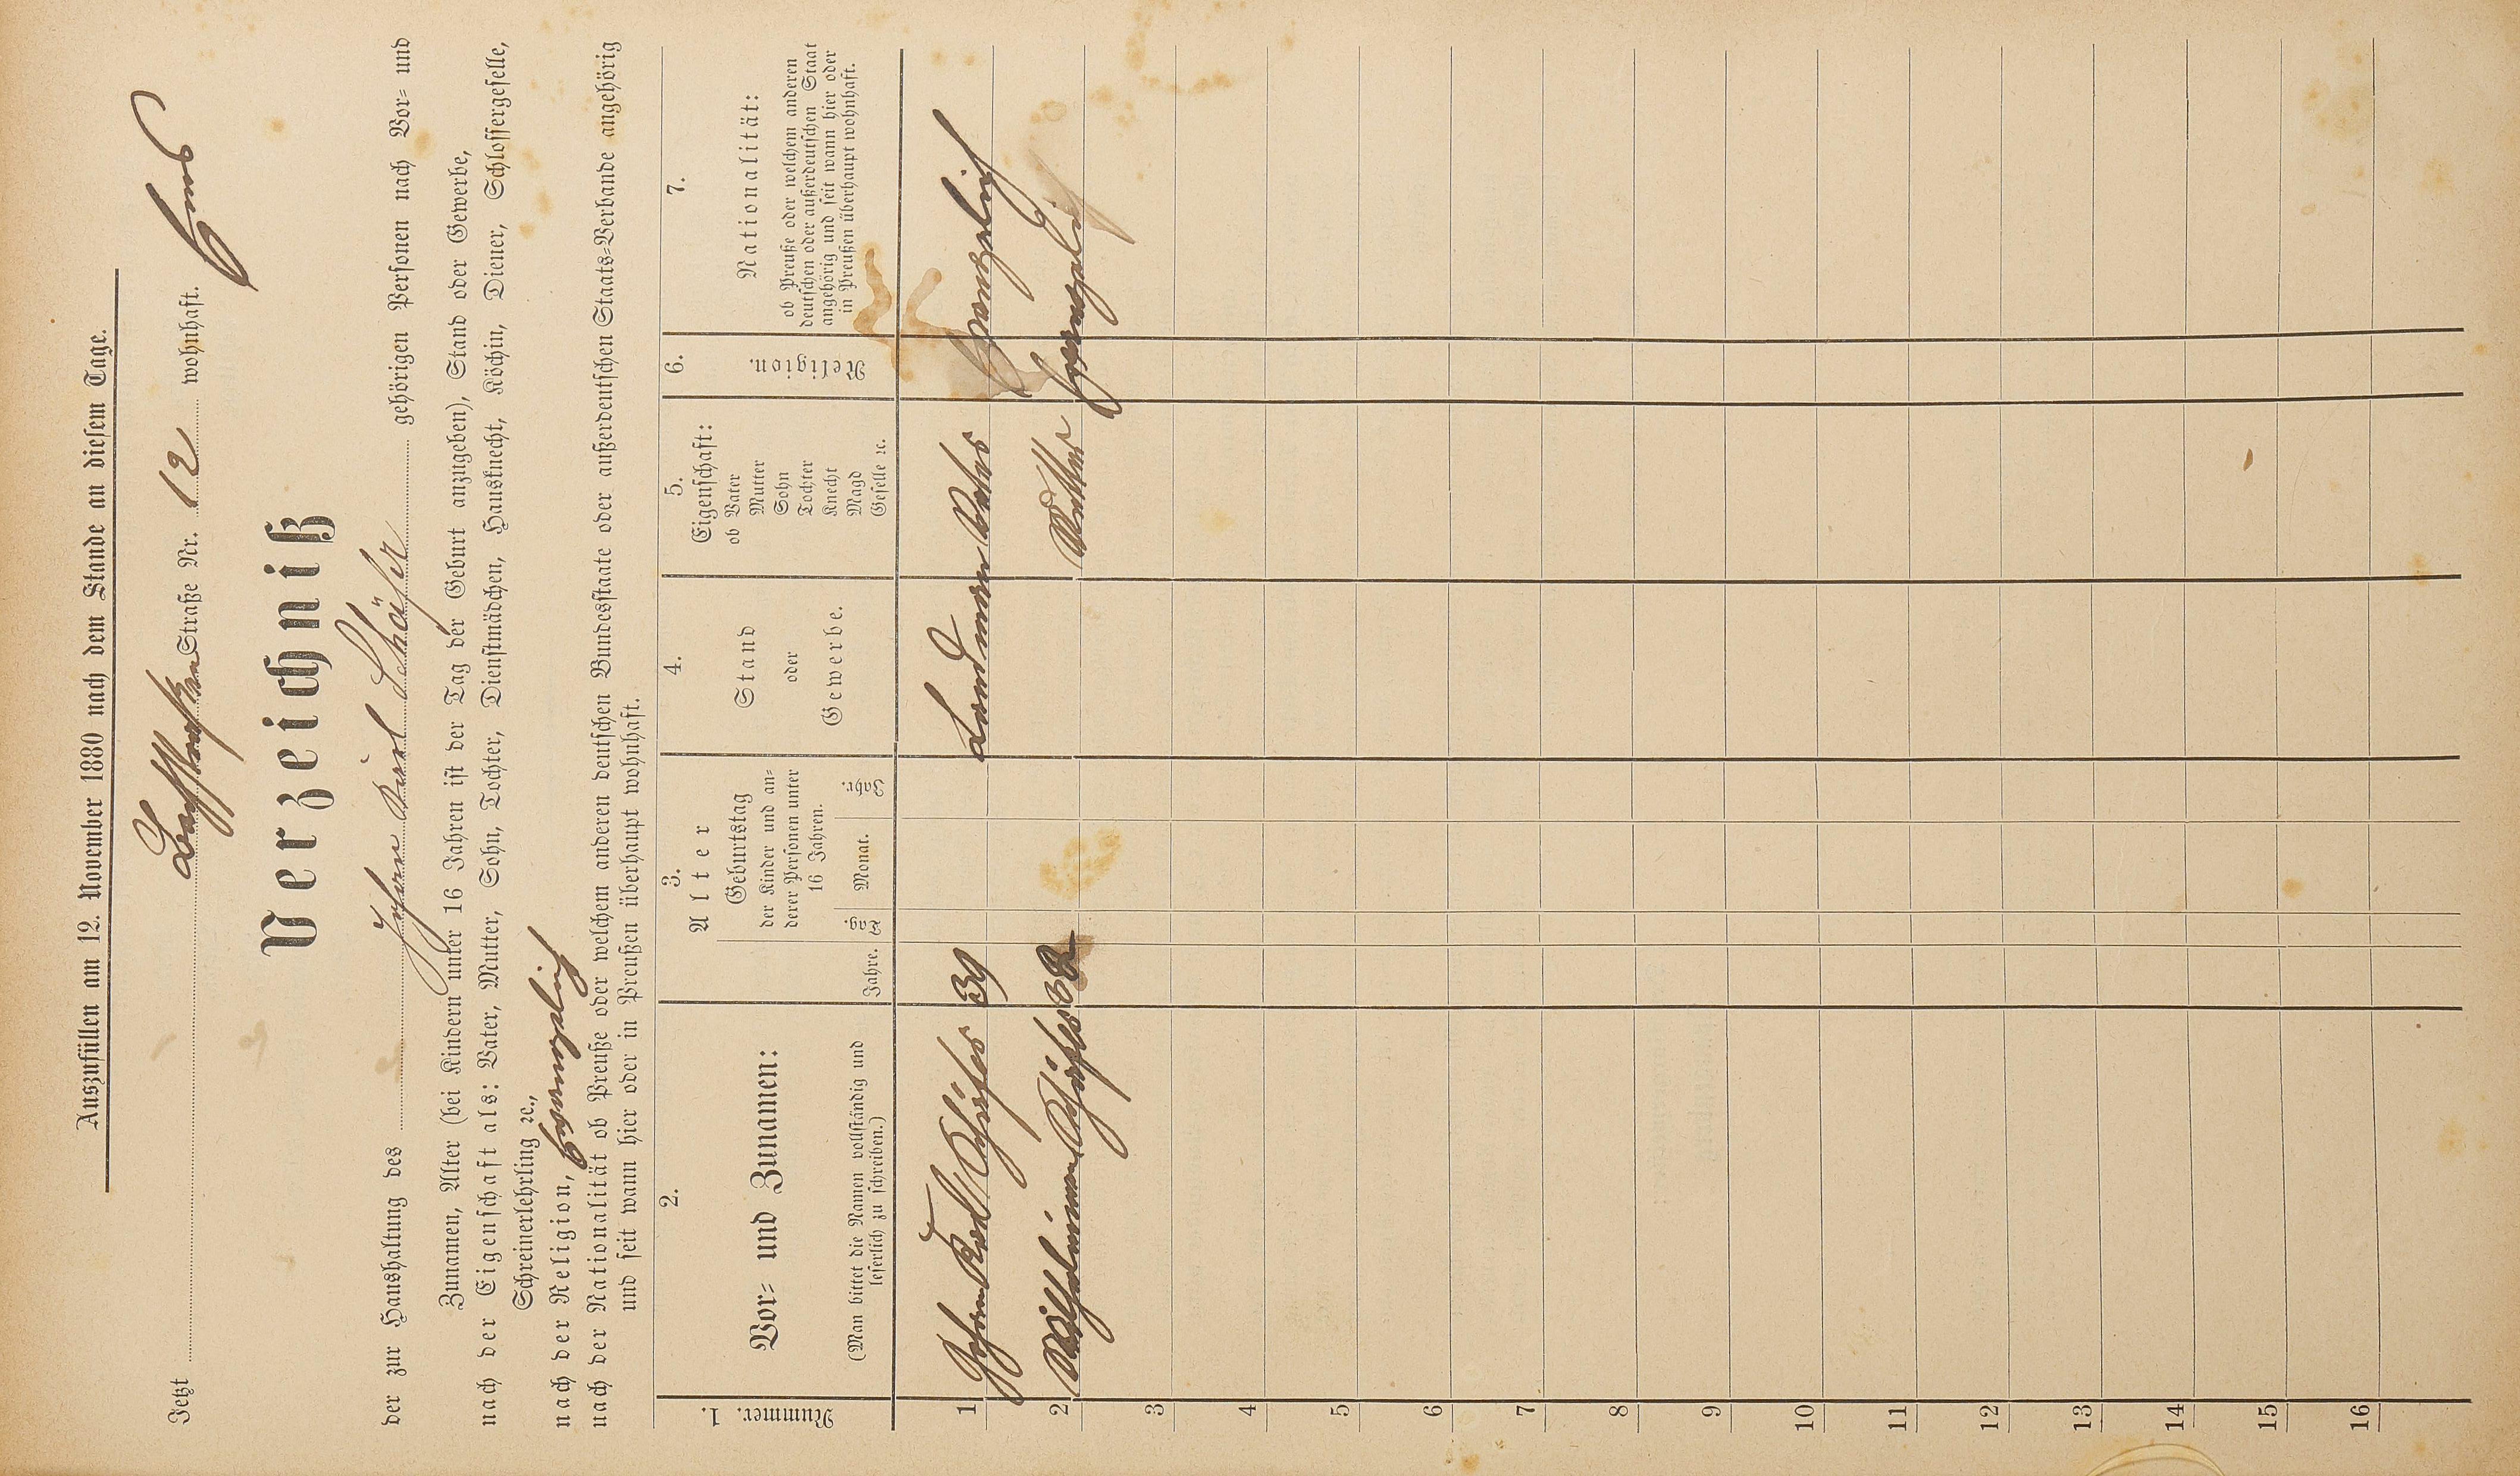 Auszufüllen am 12. November 1880 nach dem Stande an diesem Tage.
Jetzt Straße Nr. 12 wohnhaft. Ems
Verzeichniß
der zur Haushaltung des Johan Karl Schäfer gehörigen Personen nach Vor- und
Zunamen, Alter (bei Kindern unter 16 Jahren ist der Tag der Geburt anzugeben), Stand oder Gewerbe,
nach der Eigenschaft als: Vater, Mutter, Sohn, Tochter, Dienstmädchen, Hausknecht, Köchin, Diener, Schlossergeselle,
Schreinerlehrling ꝛc.,
nach der Religion, Evangelisch
nach der Nationalität ob Preuße oder welchem anderen deutschen Bundesstaate oder außerdeutschen Staats-Verbande angehörig
und seit wann hier oder in Preußen überhaupt wohnhaft.
1.
Nummer.
2.
Vor- und Zunamen:
(Man bittet die Namen vollständig und
leserlich zu schreiben.)
3.
Alter
Jahre.
Geburtstag
der Kinder und an-
derer Personen unter
16 Jahren.
Tag.
Monat.
Jahr.
4.
Stand
oder
Gewerbe.
5.
Eigenschaft:
ob Vater
Mutter
Sohn
Tochter
Knecht
Magd
Geselle ꝛc.
6.
Religion.
7.
Nationalität:
ob Preuße oder welchem anderen
deutschen oder außerdeutschen Staat
angehörig und seit wann hier oder
in Preußen überhaupt wohnhaft.
1 Johan Karl Schäfer 39 Landmann Vater Evangelisch
2 Schäfer Mutter Evangelisch
3
4
5
6
7
8
9
10
11
12
13
14
15
16